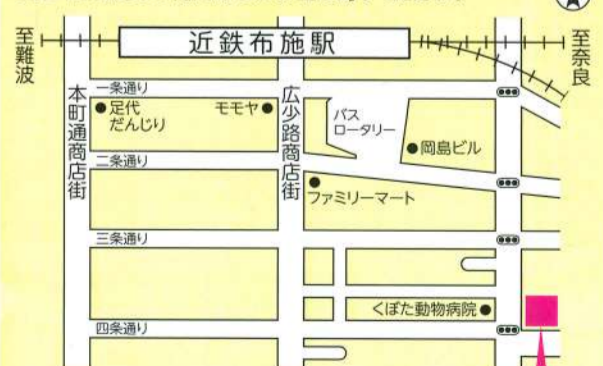 至難波
近鉄布施駅
至奈良
一条通り
本町通商店街
足代
だんじり
モモヤ
広少路商店街
バス
ロータリー
岡島ビル
二条通り
ファミリーマート
三条通り
くぼた動物病院
四条通り